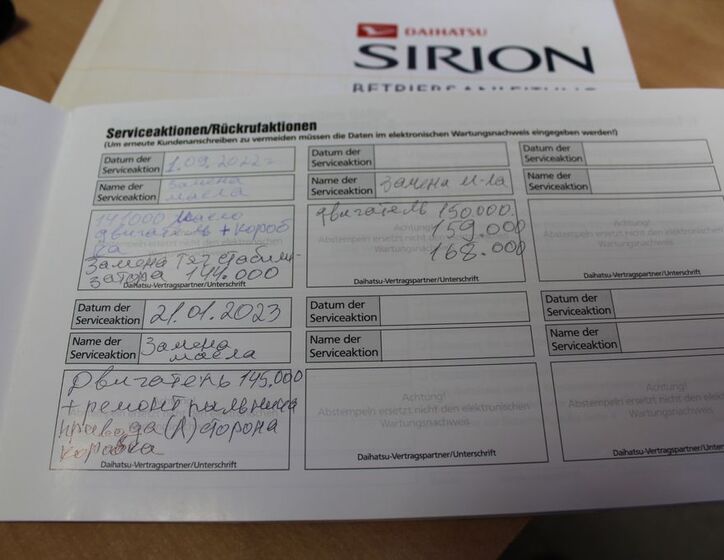 DAIHATSU
SIRION
BETRIEBSANLEITUNG
Serviceaktionen/Rückrufaktionen
(Um erneute Kundenanschreiben zu vermeiden müssen die Daten im elektronischen Wartungsnachweis eingegeben werden!)
Datum der Serviceaktion
1.09.2022г
Name der Serviceaktion
Замена
масла
141000 Масло
двигатель + короб
ка
Замена тяг стабили-
затора 144.000
Daihatsu-Vertragspartner/Unterschrift
Datum der Serviceaktion
Name der Serviceaktion
Замена м-ла
двигатель 150.000.
159.000
168.000
Achtung!
Abstempeln ersetzt nicht den elektronischen
Wartungsnachweis
Daihatsu-Vertragspartner/Unterschrift
Datum der Serviceaktion
Name der Serviceaktion
Achtung!
Abstempeln ersetzt nicht den elektronischen
Wartungsnachweis
Daihatsu-Vertragspartner/Unterschrift
Datum der Serviceaktion
21.01.2023
Name der Serviceaktion
Замена
масла
Двигатель 145.000
+ ремонт
привода (Л) сторона
Daihatsu-Vertragspartner/Unterschrift
Datum der Serviceaktion
Name der Serviceaktion
Achtung!
Abstempeln ersetzt nicht den elektronischen
Wartungsnachweis
Daihatsu-Vertragspartner/Unterschrift
Datum der Serviceaktion
Name der Serviceaktion
Achtung!
Abstempeln ersetzt nicht den elektronischen
Wartungsnachweis
Daihatsu-Vertragspartner/Unterschrift